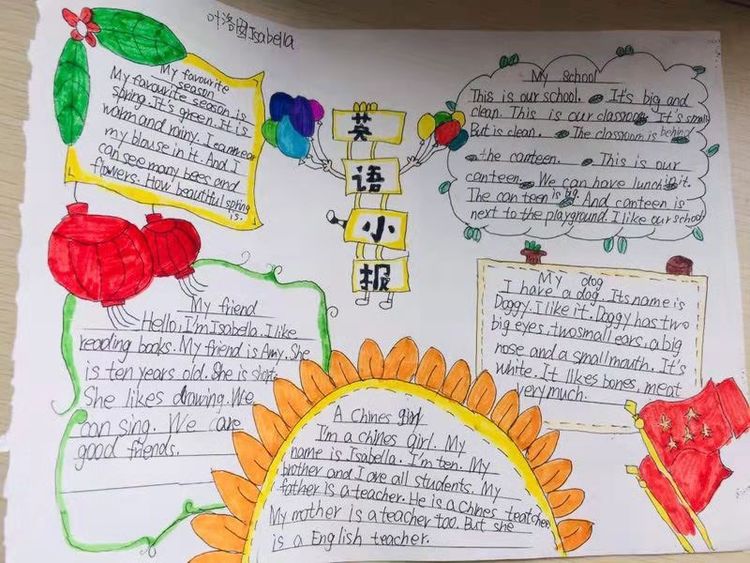 叶洛图Isabella
英
语
小
报
My favourite
season
My favourite season is
spring. It's green. It is
warm and rainy. I can wear
my blouse in it. And I
can see many bees and
flowers. How beautiful spring
is.
My school
This is our school. It's big and
clean. This is our classroom. It's small
But is clean. The classroom is behind
the canteen. This is our
canteen. We can have lunch in it.
The can teen is big. And canteen is
next to the playground. I like our school
My friend
Hello. I'm Isabella. I like
reading books. My friend is Amy. She
is ten years old. She is short.
She likes drawing. We
can sing. We are
good friends.
My dog
I have a dog. Its name is
Doggy. I like it. Doggy has two
big eyes. two small ears. a big
nose and a small mouth. It's
white. It likes bones, meat
very much.
A Chines girl
I'm a chines girl. My
name is Isabella. I'm ten. My
brother and I are all students. My
father is a teacher. He is a chines teatcher
My mother is a teacher too. But she
is a English teacher.